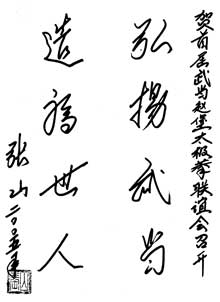 贺首届武当赵堡太极拳联谊会召开
弘扬武当
造福世人
张山二〇〇五年